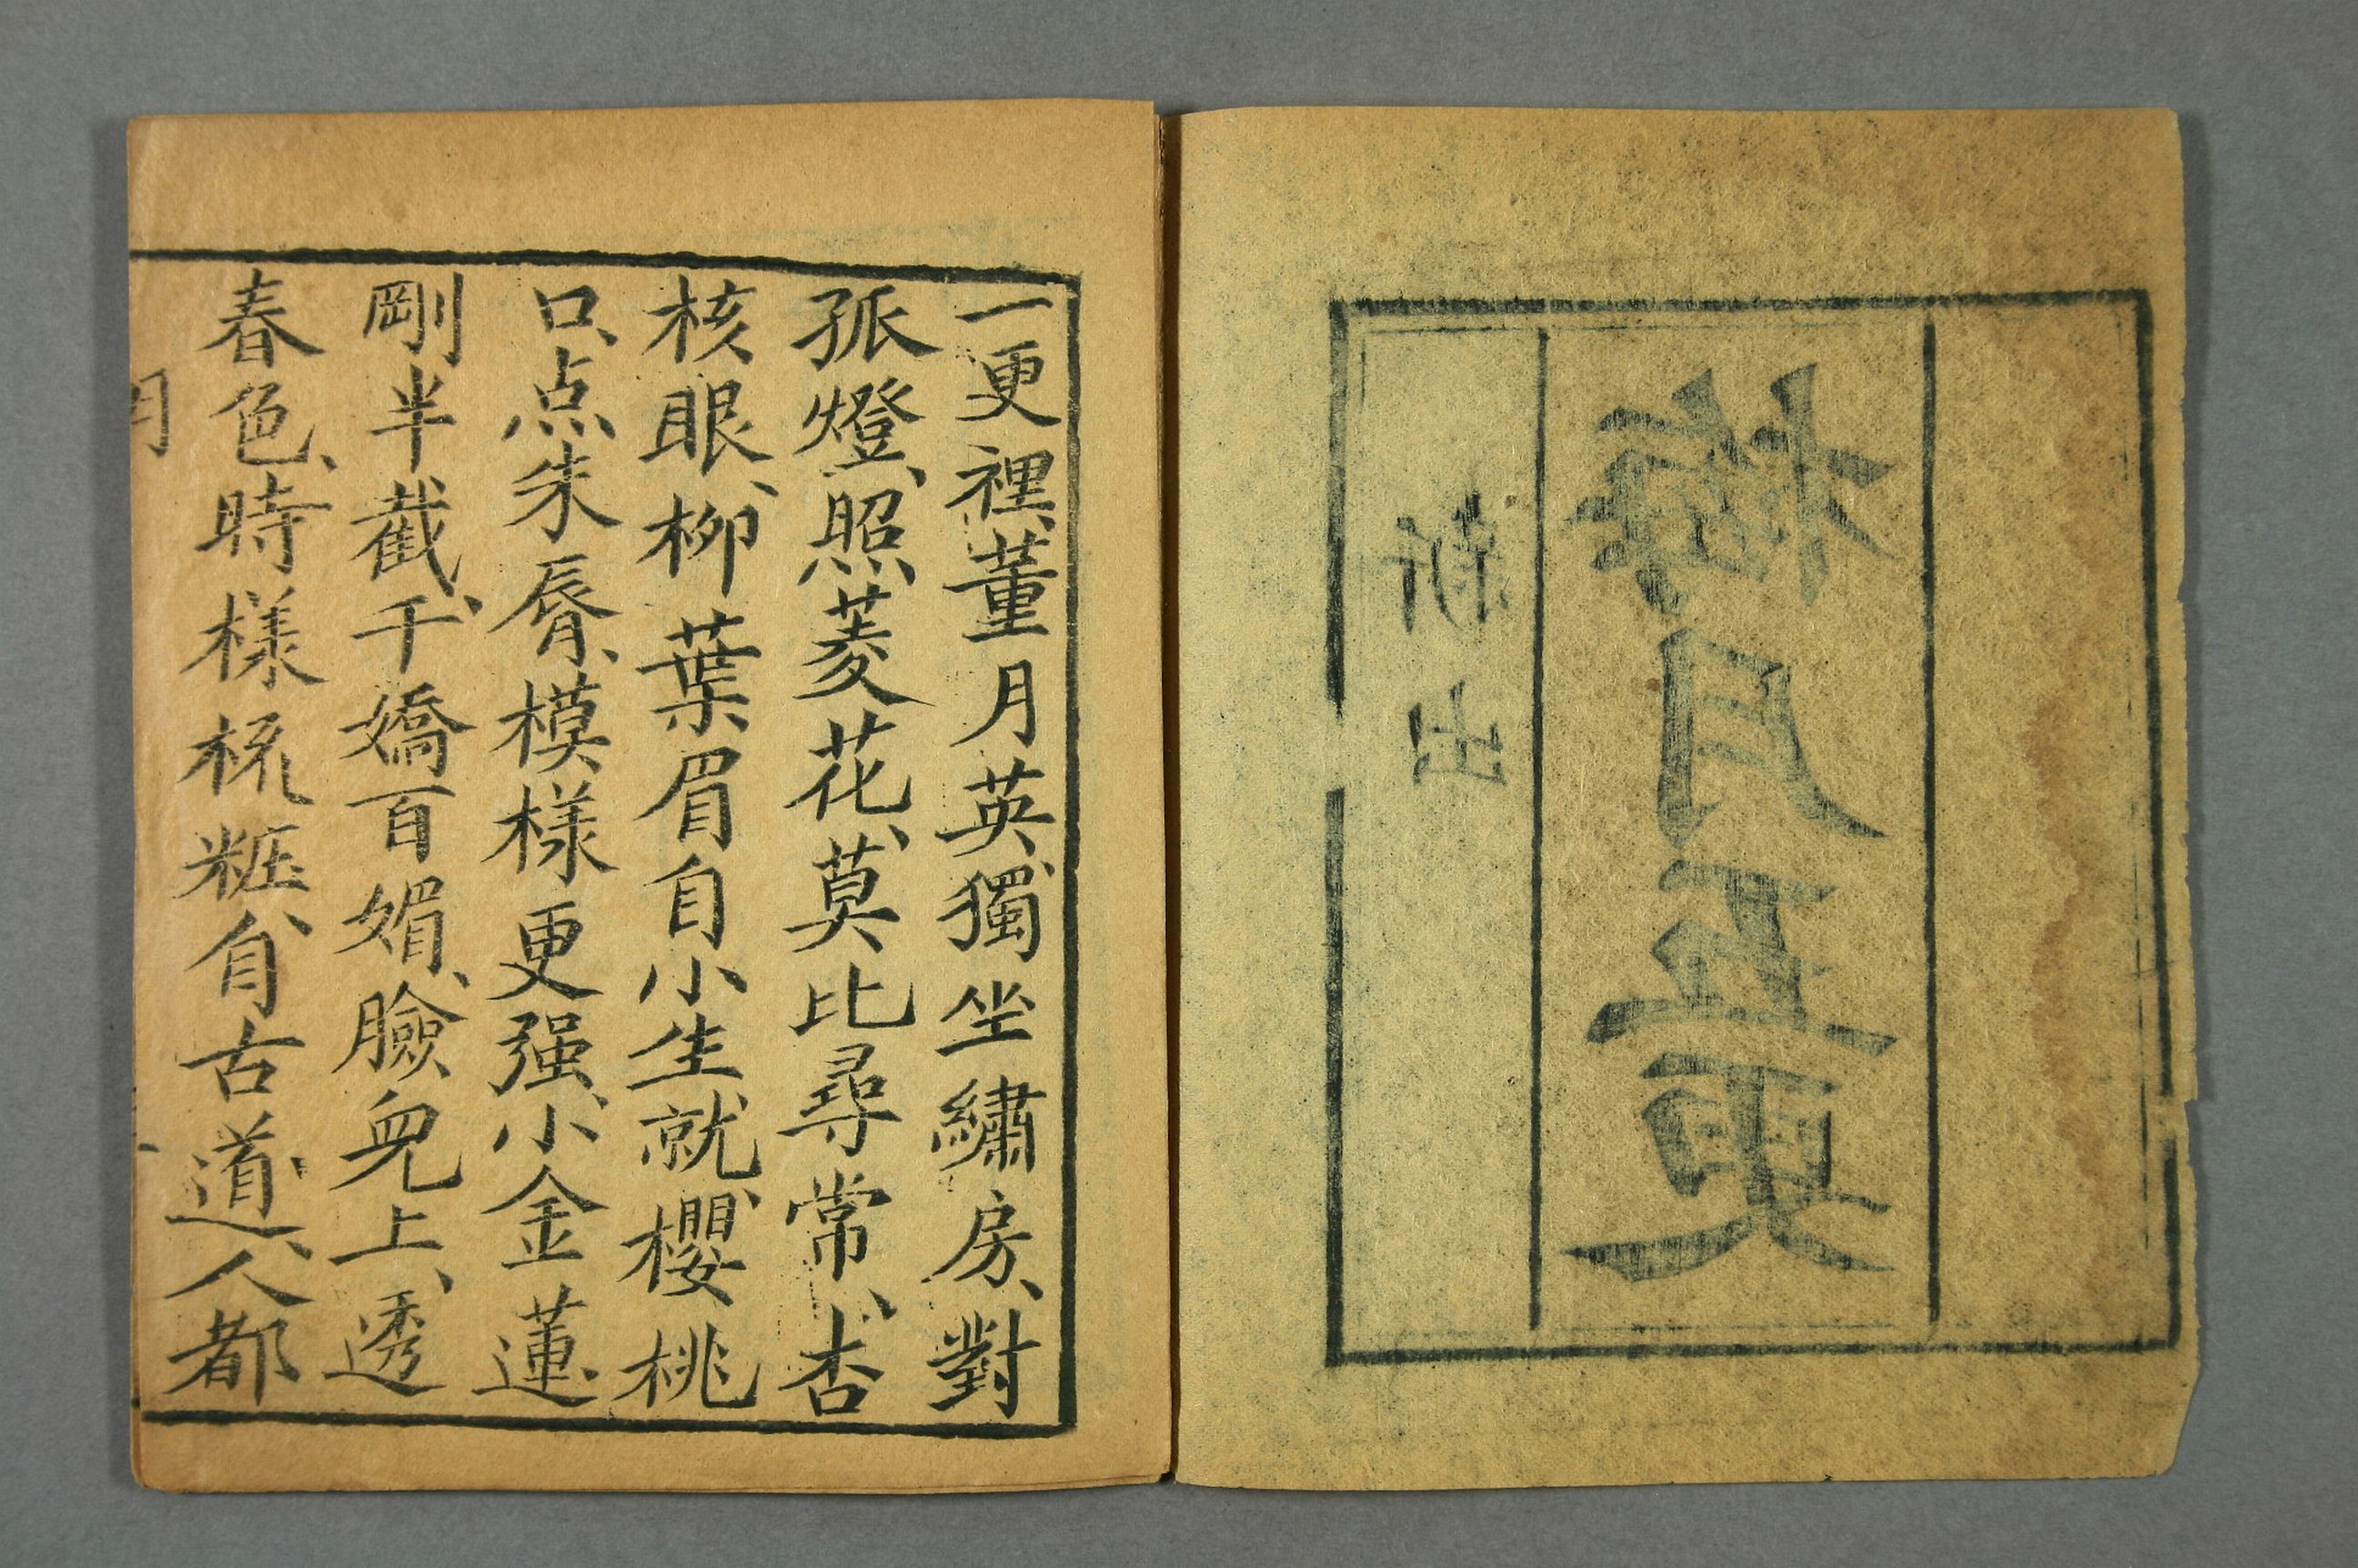 月五更
新出
一更裡、董月英、獨坐繡房、對
孤燈、照菱花、莫比尋常、杏
核眼、柳葉眉自小生就、櫻桃
口、点朱脣、模樣更强、小金蓮
剛半截、千嬌百媚、臉兒上、透
春色、時樣梳粧、自古道、人都